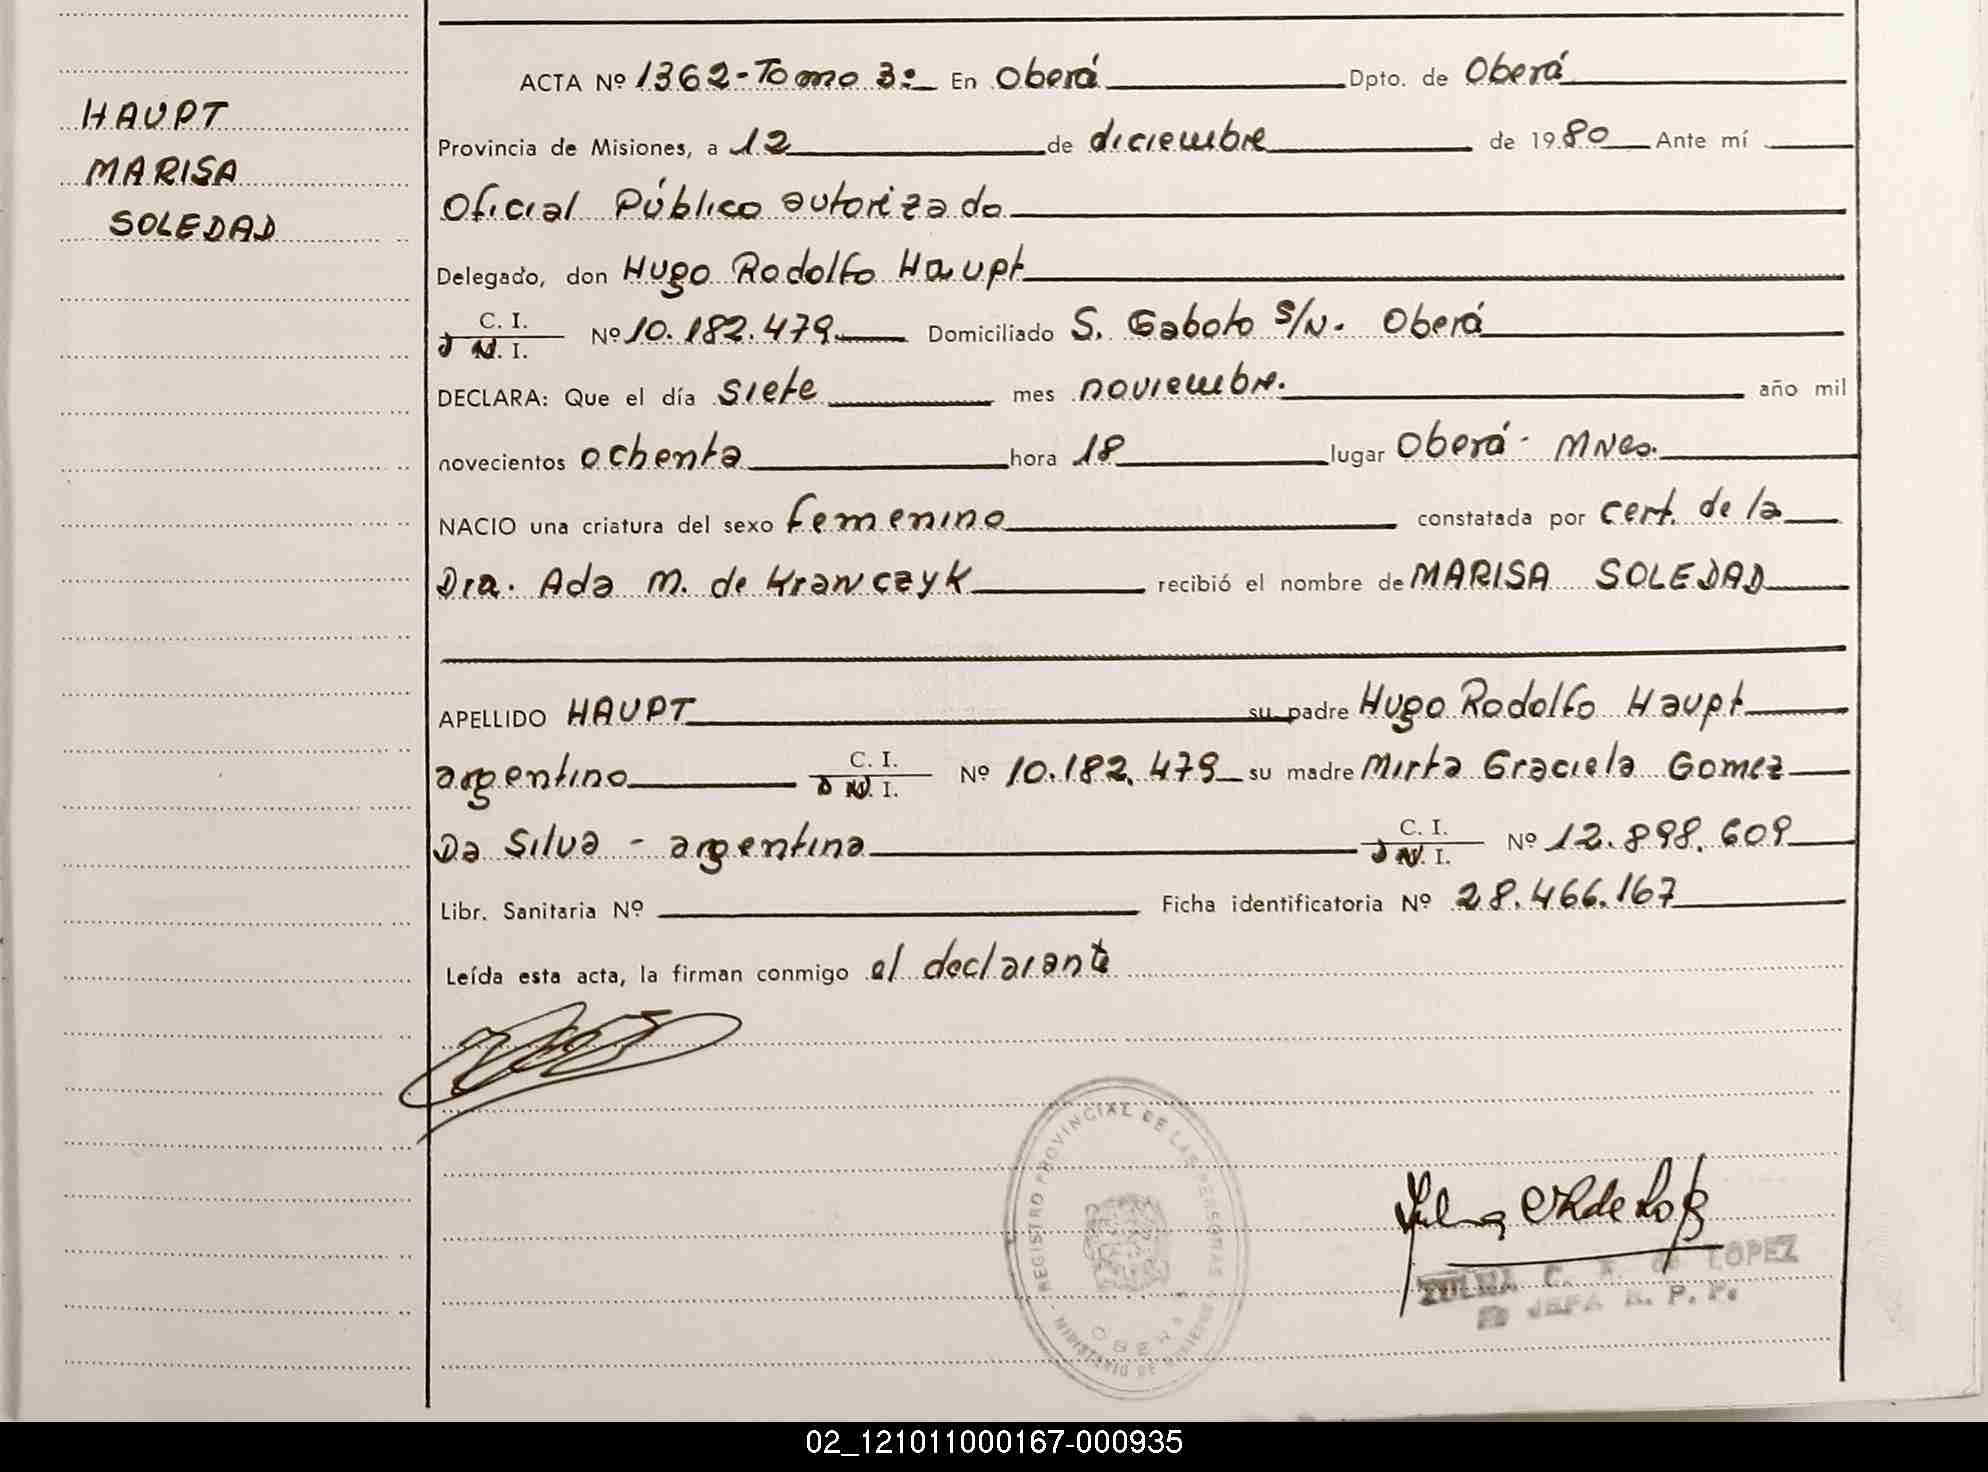 HAUPT
MARISA
SOLEDAD
ACTA Nº 1362-Tomo 3º En Oberá Dpto. de Oberá
Provincia de Misiones, a 12 de diciembre de 1980 Ante mí
Oficial Público autorizado
Delegado, don Hugo Rodolfo Haupt
C. I.
D N. I. Nº 10.182.479 Domiciliado S. Gaboto S/N. Oberá
DECLARA: Que el día siete mes noviembre. año mil
novecientos ochenta hora 18 lugar Oberá - Mnes.
NACIO una criatura del sexo femenino constatada por cert. de la
Dra. Ada M. de Krawczyk recibió el nombre de MARISA SOLEDAD
APELLIDO HAUPT su padre Hugo Rodolfo Haupt
argentino C. I. D N. I. Nº 10.182.479 su madre Mirta Graciela Gomez
Da Silva - argentina C. I. D N. I. Nº 12.898.609
Libr. Sanitaria Nº Ficha identificatoria Nº 28.466.167
Leída esta acta, la firman conmigo el declarante
REGISTRO PROVINCIAL DE LAS PERSONAS
OBERA
ZULMA C. de LOPEZ
JEFA R. P. P.
02_121011000167-000935